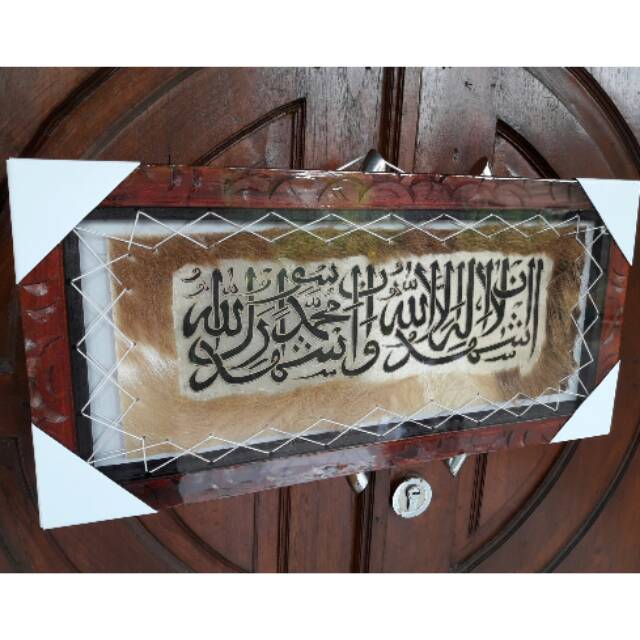 اشهد ان لا اله الا الله واشهد ان محمدا رسول الله